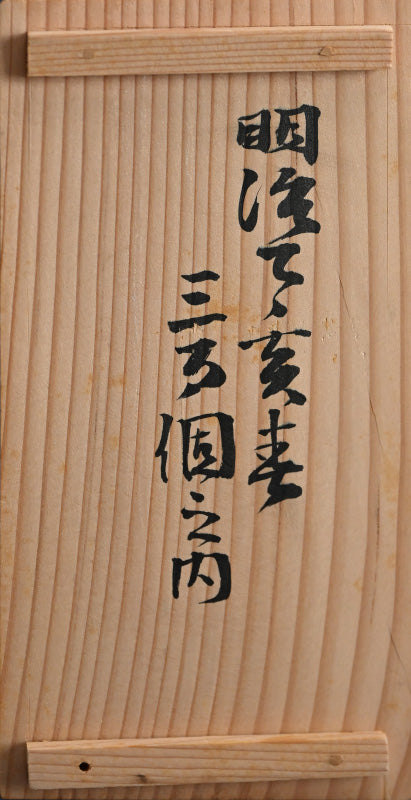 明治丁亥春
三百個之内